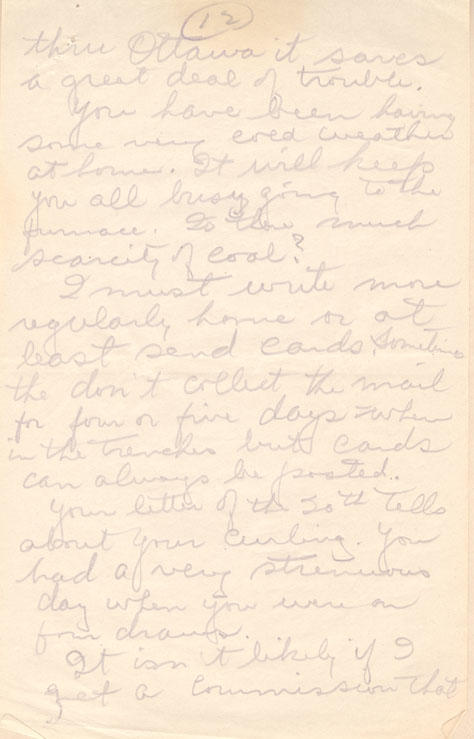 12
thru Ottawa it saves
a great deal of trouble.
You have been having
some very cold weather
at home. It will keep
you all busy going to the
furnace. Is there much
scarcity of coal?
I must write more
regularly home or at
least send cards. Sometimes
the don't collect the mail
for four or five days when
in the trenches but cards
can always be posted.
Your letter of the 30th tells
about your curling. You
had a very strenuous
day when you were on
four draws.
It isn't likely if I
get a Commission that